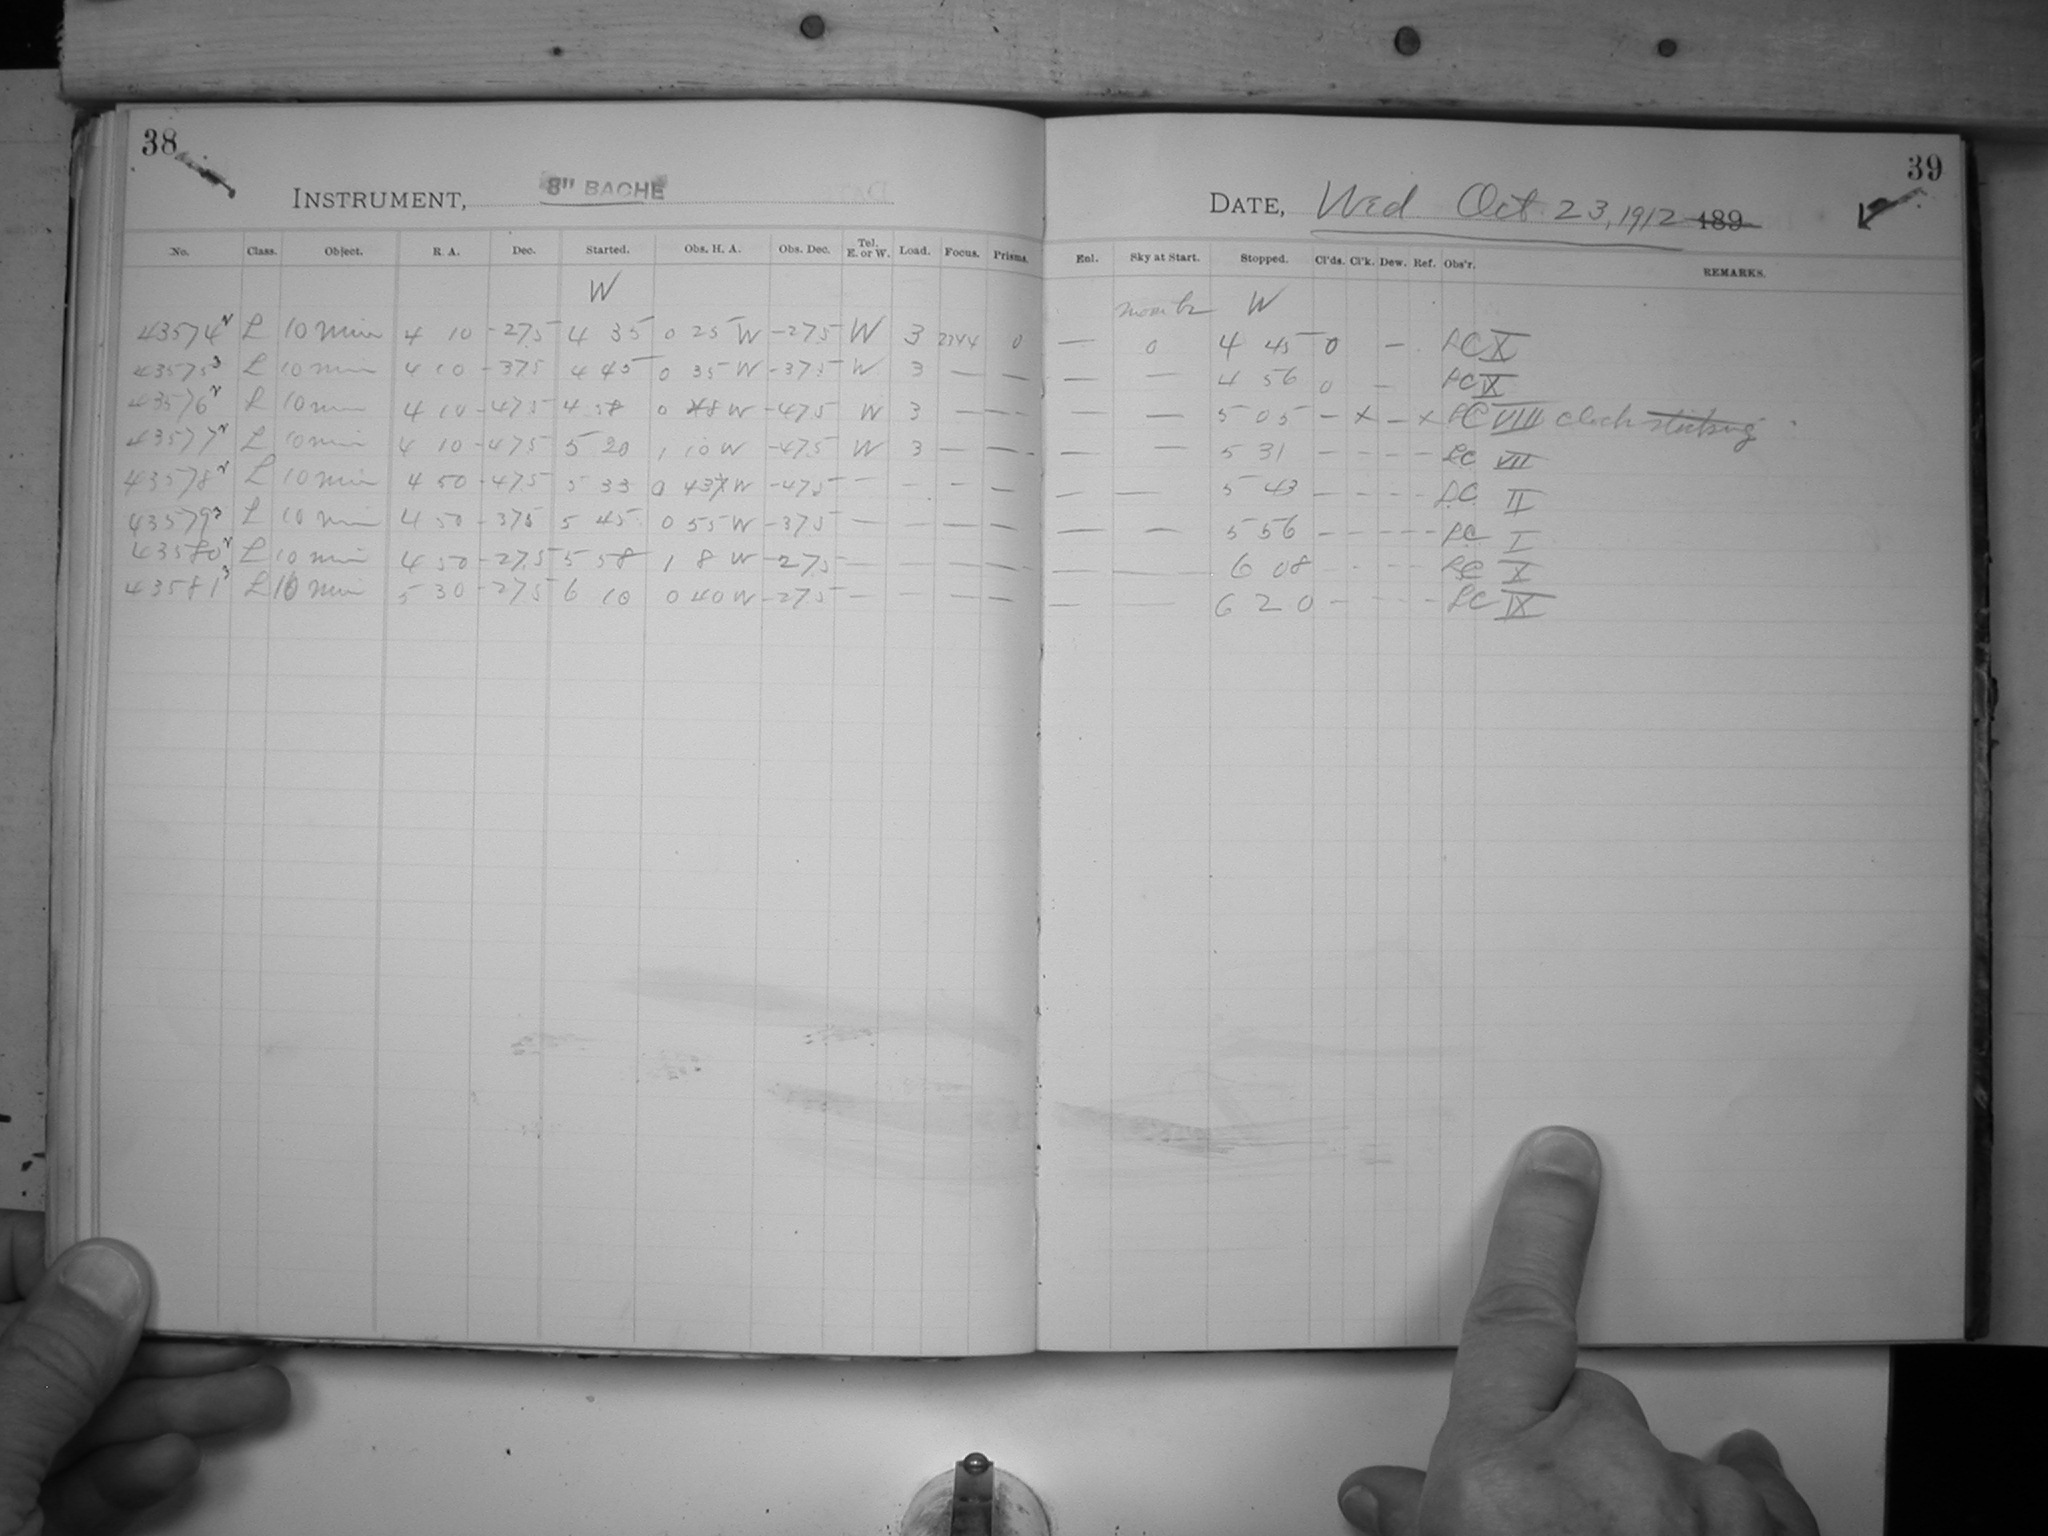 38
INSTRUMENT, 8" BACHE
No. Class. Object. R. A. Dec. Started. Obs. H. A. Obs. Dec. Tel. E. or W. Load. Focus. Prisms.
W
43574 L 10 min 4 10 -275 4 35 0 25 W -275 W 3 2344 0
43575 L 10 min 4 10 -375 4 45 0 35 W -375 W 3 — —
43576 L 10 min 4 10 -475 4 58 0 48 W -475 W 3 — —
43577 L 10 min 4 10 -475 5 20 1 10 W -475 W 3 — —
43578 L 10 min 4 50 -475 5 33 0 43 W -475 — — — —
43579 L 10 min 4 50 -375 5 45 0 55 W -375 — — — —
43580 L 10 min 4 50 -275 5 58 1 8 W -275 — — — —
43581 L 10 min 5 30 -275 6 10 0 40 W -275 — — — —
39
DATE, Wed Oct 23, 1912 189
Enl. Sky at Start. Stopped. Cl'ds. Cl'k. Dew. Ref. Obs'r. REMARKS.
W
— 0 4 45 0 — LC X
— — 4 56 0 — LC IX
— — 5 05 — x — x LC VIII clock sticking
— — 5 31 — — — — LC VII
— — 5 43 — — — — LC II
— — 5 56 — — — — LC I
— — 6 08 — — — — LC X
— — 6 20 — — — — LC IX